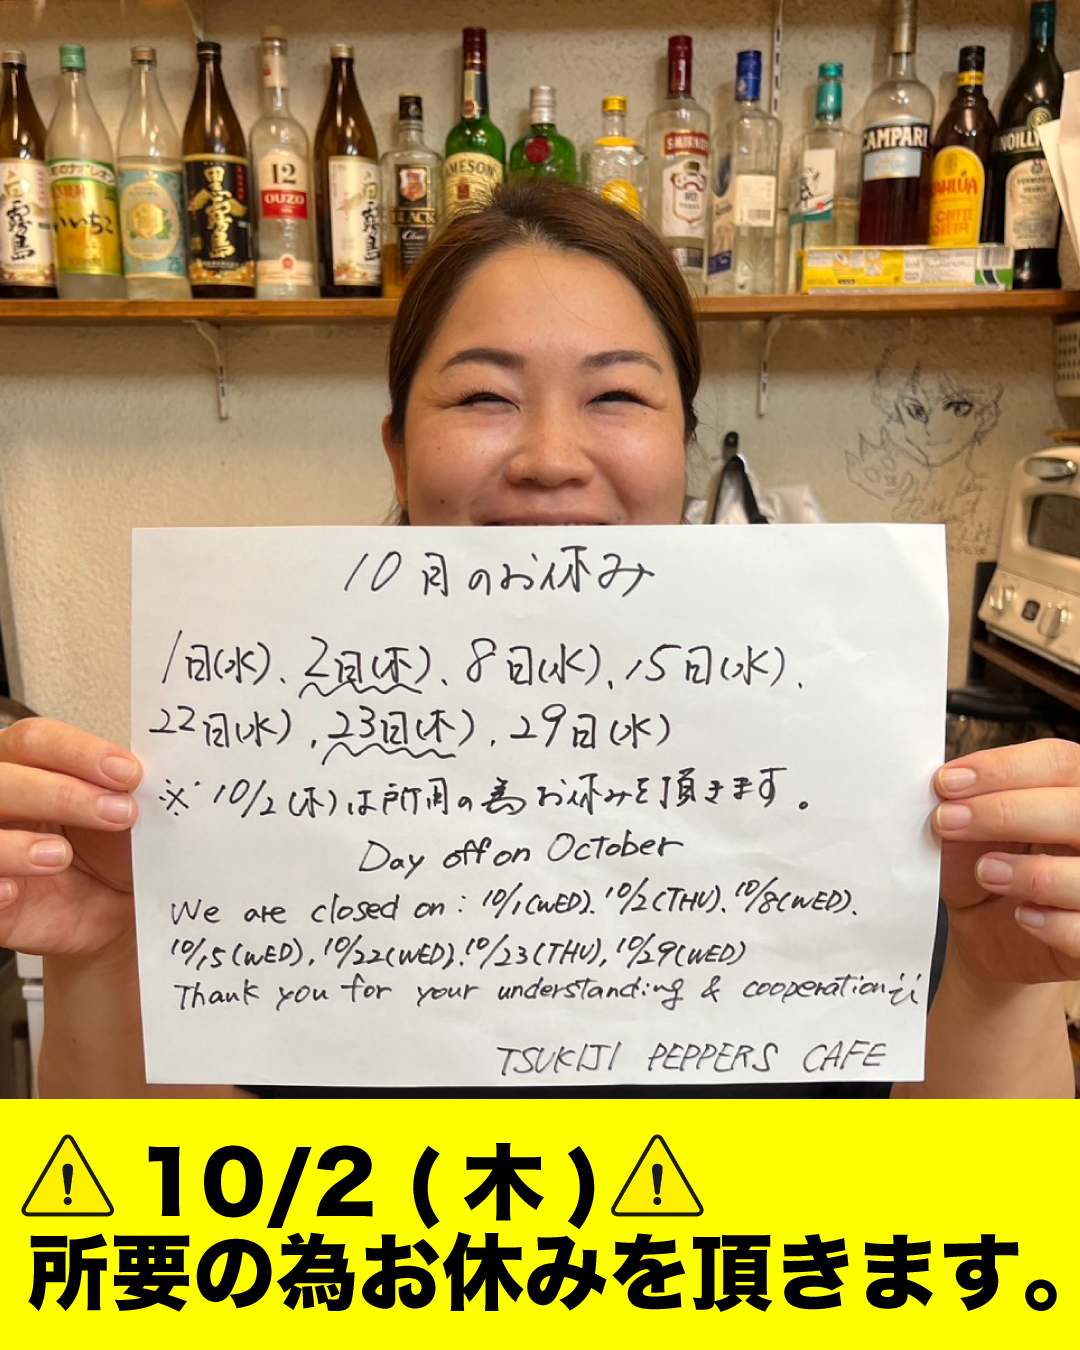 白霧島
いいちこ
25
黒霧島
12
OUZO
白霧島
BLACK
JAMESON
SMIRNOFF
CAMPARI
KAHLÚA
NOILLY
VERMOUTH
10月のお休み
1日(水)、2日(木)、8日(水)、15日(水)、
22日(水)、23日(木)、29日(水)
※10/2(木)は所用の為お休みを頂きます。
Day off on October
We are closed on : 10/1(WED). 10/2(THU). 10/8(WED).
10/15(WED), 10/22(WED). 10/23(THU), 10/29(WED)
Thank you for your understanding & cooperation
TSUKIJI PEPPERS CAFE
10/2(木)
所要の為お休みを頂きます。